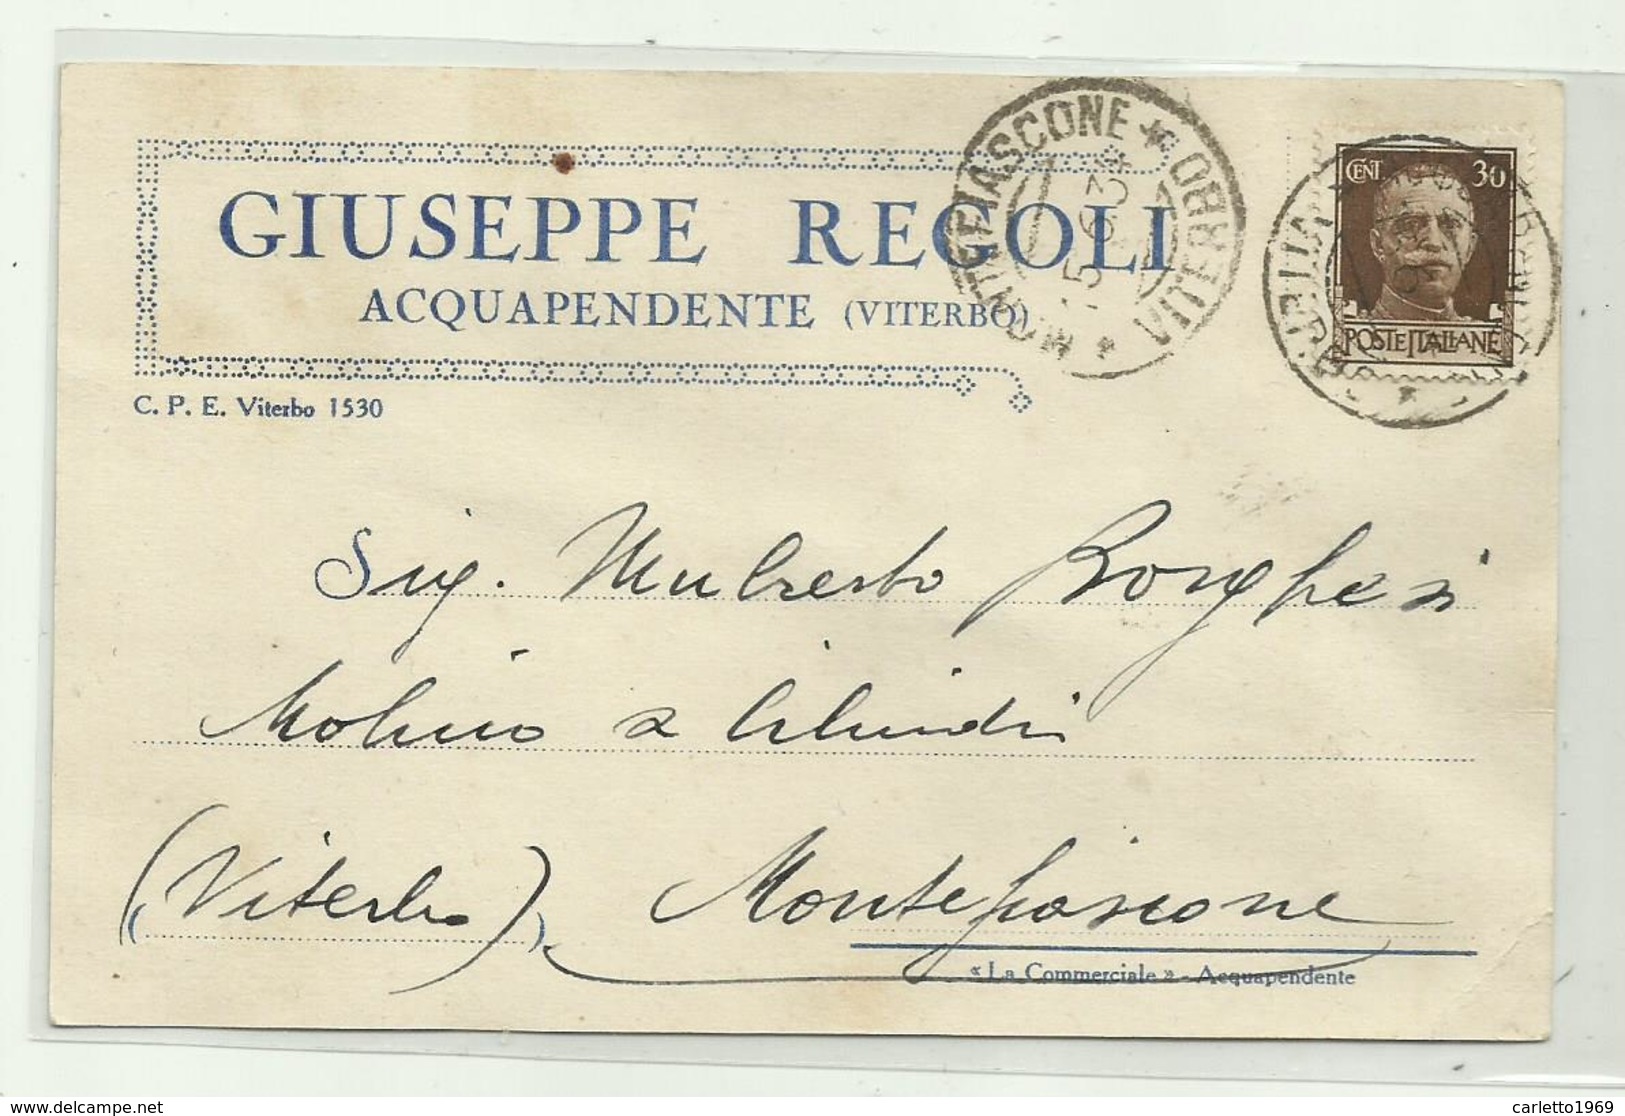 GIUSEPPE REGOLI
ACQUAPENDENTE (VITERBO)
C. P. E. Viterbo 1530
MONTEFIASCONE * VITERBO *
CENT 30
POSTE ITALIANE
Sig. Borghesi
Molino a Cilindri
(Viterbo) Montefiascone
« La Commerciale » - Acquapendente
www.delcampe.net
carletto1969